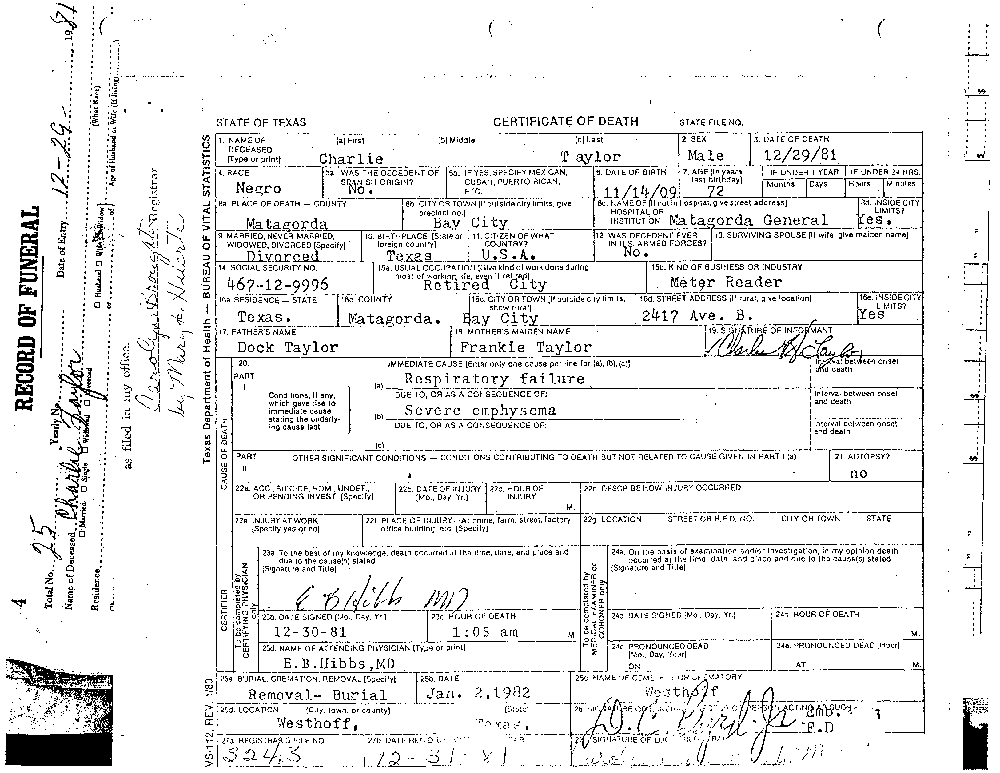 RECORD OF FUNERAL
Total No. 25 Yearly No.
Date of Entry 12-29- 1981
Name of Deceased Charlie Taylor
Residence
as filed in my office.
Registrar
STATE OF TEXAS CERTIFICATE OF DEATH STATE FILE NO.
Texas Department of Health — BUREAU OF VITAL STATISTICS
1. NAME OF DECEASED (Type or print) (a) First (b) Middle (c) Last 2. SEX 3. DATE OF DEATH
Charlie Taylor Male 12/29/81
4. RACE 5a. WAS THE DECEDENT OF SPANISH ORIGIN? 5b. IF YES, SPECIFY MEXICAN, CUBAN, PUERTO RICAN, ETC. 6. DATE OF BIRTH 7. AGE (In years last birthday) IF UNDER 1 YEAR IF UNDER 24 HRS.
Months Days Hours Minutes
Negro No. 11/14/09 72
8a. PLACE OF DEATH — COUNTY 8b. CITY OR TOWN (If outside city limits, give precinct no.) 8c. NAME OF (If not in hospital, give street address) HOSPITAL OR INSTITUTION 8d. INSIDE CITY LIMITS?
Matagorda Bay City Matagorda General Yes.
9. MARRIED, NEVER MARRIED, WIDOWED, DIVORCED (Specify) 10. BIRTHPLACE (State or foreign country) 11. CITIZEN OF WHAT COUNTRY? 12. WAS DECEDENT EVER IN U.S. ARMED FORCES? 13. SURVIVING SPOUSE (If wife, give maiden name)
Divorced Texas U.S.A. No.
14. SOCIAL SECURITY NO. 15a. USUAL OCCUPATION (Give kind of work done during most of working life, even if retired) 15b. KIND OF BUSINESS OR INDUSTRY
467-12-9996 Retired City Meter Reader
16a. RESIDENCE — STATE 16b. COUNTY 16c. CITY OR TOWN (If outside city limits, show rural) 16d. STREET ADDRESS (If rural, give location) 16e. INSIDE CITY LIMITS?
Texas. Matagorda. Bay City 2417 Ave. B. Yes
17. FATHER'S NAME 18. MOTHER'S MAIDEN NAME 19. SIGNATURE OF INFORMANT
Dock Taylor Frankie Taylor
20. IMMEDIATE CAUSE (Enter only one cause per line for (a), (b), (c)) Interval between onset and death
PART I
(a) Respiratory failure
Conditions, if any, which gave rise to immediate cause stating the underlying cause last
DUE TO, OR AS A CONSEQUENCE OF: Interval between onset and death
(b) Severe emphysema
DUE TO, OR AS A CONSEQUENCE OF: Interval between onset and death
(c)
CAUSE OF DEATH
PART II OTHER SIGNIFICANT CONDITIONS — CONDITIONS CONTRIBUTING TO DEATH BUT NOT RELATED TO CAUSE GIVEN IN PART I (a) 21. AUTOPSY?
no
22a. ACC., SUICIDE, HOM., UNDET., OR PENDING INVEST. (Specify) 22b. DATE OF INJURY (Mo., Day, Yr.) 22c. HOUR OF INJURY M. 22d. DESCRIBE HOW INJURY OCCURRED
22e. INJURY AT WORK (Specify yes or no) 22f. PLACE OF INJURY - At home, farm, street, factory, office building, etc. (Specify) 22g. LOCATION STREET OR R.F.D. NO. CITY OR TOWN STATE
CERTIFIER
To be completed by CERTIFYING PHYSICIAN only
23a. To the best of my knowledge, death occurred at the time, date, and place and due to the cause(s) stated (Signature and Title)
E B Hibbs MD
23b. DATE SIGNED (Mo., Day, Yr.) 23c. HOUR OF DEATH
12-30-81 1:05 am M
23d. NAME OF ATTENDING PHYSICIAN (Type or print)
E.B.Hibbs,MD
To be completed by MEDICAL EXAMINER or CORONER only
24a. On the basis of examination and/or investigation, in my opinion death occurred at the time, date, and place and due to the cause(s) stated (Signature and Title)
24b. DATE SIGNED (Mo., Day, Yr.) 24c. HOUR OF DEATH M.
24d. PRONOUNCED DEAD (Mo., Day, Year) ON 24e. PRONOUNCED DEAD (Hour) AT M.
25a. BURIAL, CREMATION, REMOVAL (Specify) 25b. DATE 25c. NAME OF CEMETERY OR CREMATORY
Removal- Burial Jan. 2,1982 Westhoff
25d. LOCATION (City, town, or county) (State)
Westhoff, Texas.
F.D
27a. REGISTRARS FILE NO. 27b. DATE REC'D
3243 12-31-81
VS-112, REV. 1/80